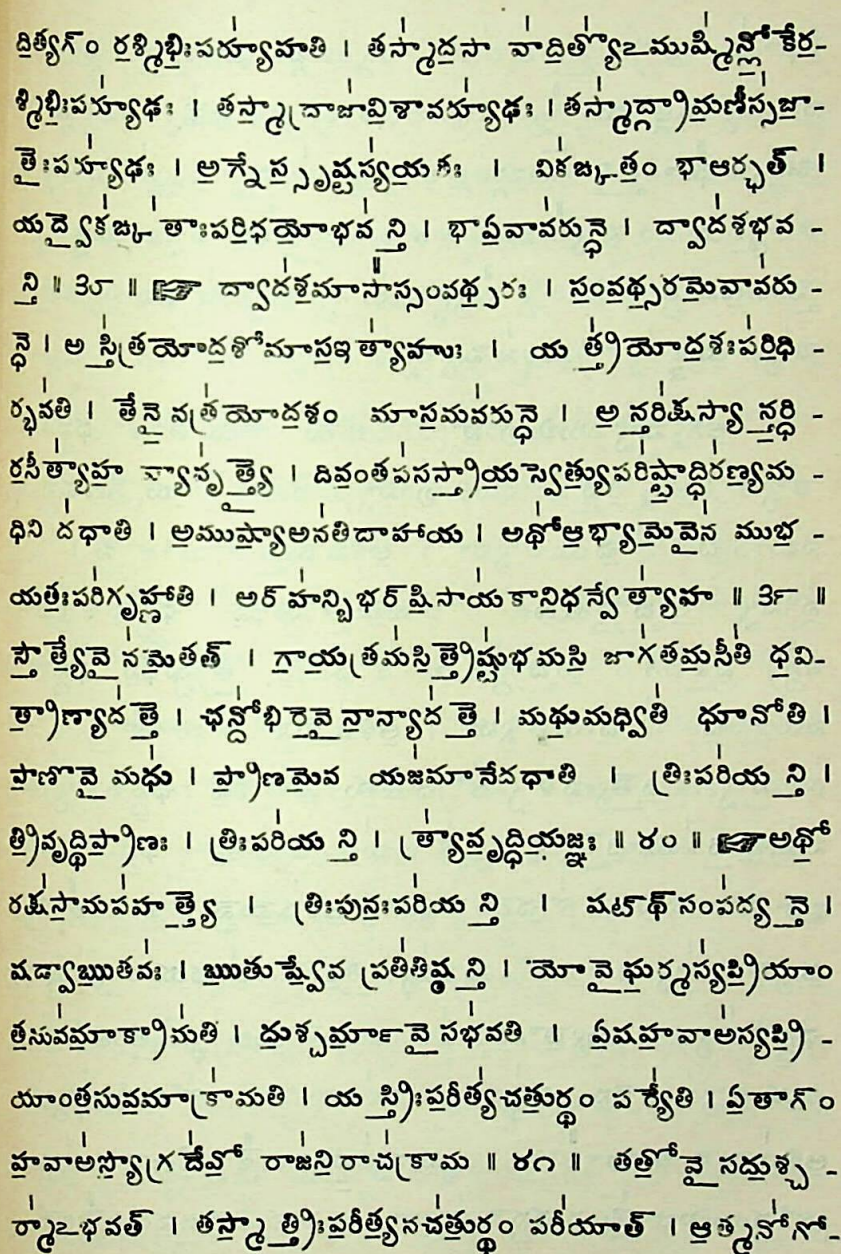 ది॒త్యగ్ం ర॒శ్మిభిః॒పర్యూ॑హతి । తస్మా॑ద॒సా వా॑ది॒త్యో॑ఽముష్మి॑న్లో॒కేర॒-
శ్మిభిః॒పర్యూ॑ఢః । తస్మా॒ద్రాజా॑వి॒శావర్యూ॑ఢః । తస్మా॑ద్గ్రామ॒ణీస్స॑జా॒-
తైః॒పర్యూ॑ఢః । అ॒గ్నేస్సృ॒ష్టస్య॑య॒తః । విక॑ఙ్క॒తం భా॑ఆర్ఛత్ ।
యద్వైక॑ఙ్కతాఃపరి॒ధయో॒భవ॑న్తి । భాఏ॒వావ॑రున్ధే । ద్వాద॑శభవ -
న్తి ॥ ౩౮ ॥ ☞ ద్వాద॑శ॒మాసా᳚స్సంవథ్స॒రః । సం॒వ॒థ్స॒రమే॒వావ॑రు -
న్ధే । అస్తి॑త్రయోద॒శోమాస॒ఇత్యా॑హుః । యత్త్ర॑యోద॒శఃప॑రి॒ధి -
ర్భవ॑తి । తేనై॒వత్ర॑యోద॒శం మాస॒మవ॑రున్ధే । అ॒న్తరి॑క్షస్యా॒న్తర్ధి॒ -
ర॒సీత్యా॑హ॒ వ్యావృ॑త్త్యై । దివం॒తప॑సస్త్రాయ॒స్వేత్యు॒పరి॑ష్టా॒ద్ధిర॑ణ్య॒మ -
ధిని ద॑ధాతి । అ॒ముష్యా॑అన॑తిదాహాయ । అథో॑ఆ॒భ్యామే॒వైన॑ ముభ॒ -
యతః॒పరి॑గృహ్ణాతి । అర్హ॑న్బిభర్షి॒సాయ॑కాని॒ధన్వేత్యా॑హ ॥ ౩౯ ॥
స్తౌత్యే॒వైన॑మే॒తత్ । గా॒య॒త్రమ॑సి॒త్రైష్టు॑భమసి॒ జాగ॑తమ॒సీతి॑ ధ॒వి-
త్రా॒ణ్యాద॑త్తే । ఛన్దో॑భిరే॒వైనా॒న్యాద॑త్తే । మధు॒మధ్వితి॑ ధూనోతి ।
ప్రా॒ణోవై॒ మధు॑ । ప్రా॒ణమే॒వ యజ॑మానేదధాతి । త్రిఃపరి॑యన్తి ।
త్రి॒వృద్ధిప్రా॒ణః । త్రిఃపరి॑యన్తి । త్ర్యా॑వృ॒ద్ధియ॒జ్ఞః ॥ ౪౦ ॥ ☞ అథో॒
రక్ష॑సా॒మప॑హత్త్యై । త్రిఃపునః॒పరి॑యన్తి । షట్థ్సంప॑ద్యన్తే ।
షడ్వాఋ॒తవః॑ । ఋ॒తుష్వే॒వ ప్రతి॑తిష్ఠన్తి । యోవై॒ ఘ॒ర్మస్య॑ప్రి॒యాం
త॒నువ॑మా॒క్రామ॑తి । దు॒శ్చర్మా॒వై సభ॑వతి । ఏ॒షహ॒వాఅ॑స్యప్రి॒ -
యాంత॒నువ॒మాక్రా॑మతి । యస్త్రిః॒పరీ॒త్య॑చతు॒ర్థం ప॒ర్యేతి॑ । ఏ॒తాగ్ం
హ॒వాఅ॑స్యో॒గ్రదే॑వో॒ రాజ॑ని॒రాచ॑క్రామ ॥ ౪౧ ॥ తతో॒వై సదు॒శ్చ -
ర్మా॑ఽభవత్ । తస్మా॒త్త్రిఃప॒రీత్య॒నచ॑తు॒ర్థం పరీ॑యాత్ । ఆ॒త్మనో॑గో॒-